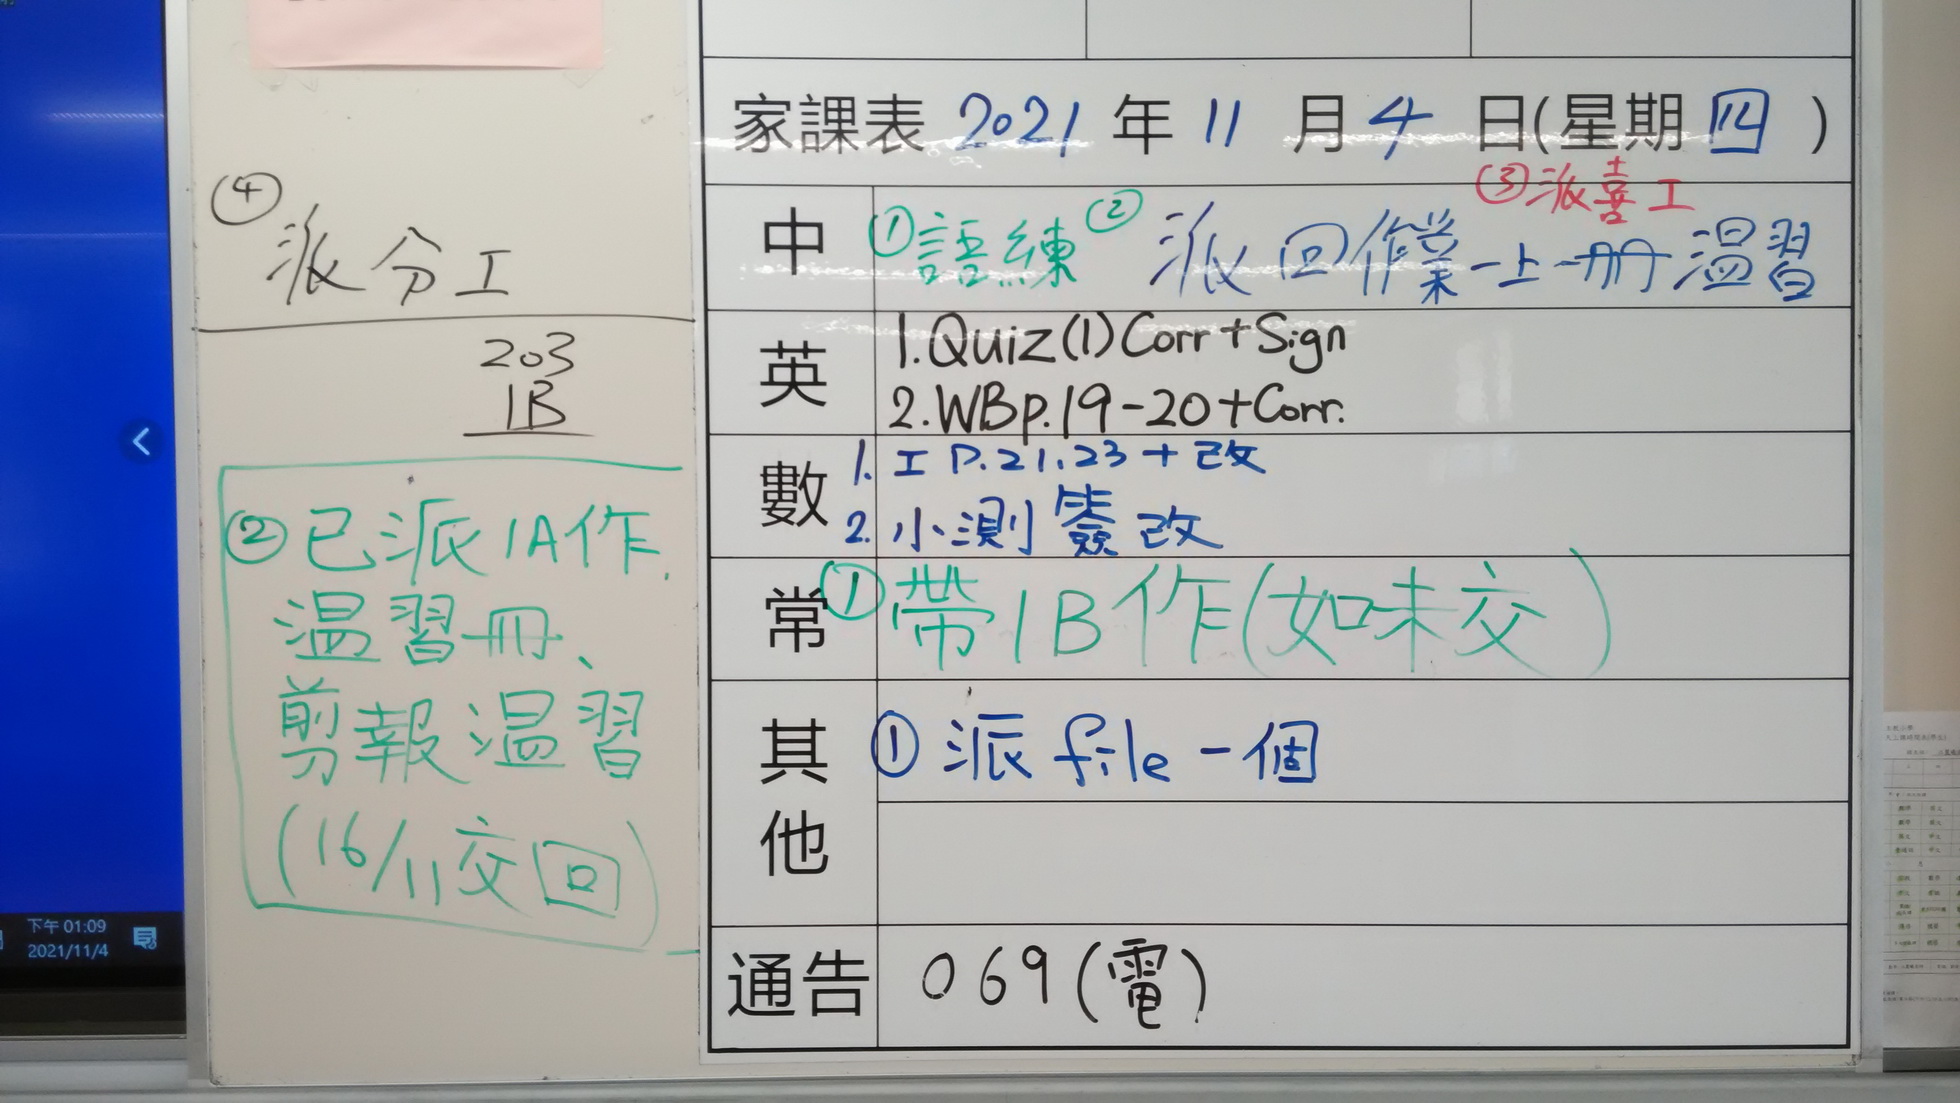 家課表 2021 年 11 月 4 日(星期 四 )
中 ①語練 ② 派回作業一上一冊温習
③派喜工
④派分工
英 1.Quiz(1)Corr+Sign
2.WBp.19-20+Corr.
203
1B
數 1. 工 P.21.23+改
2. 小測簽改
常 ①帶1B作(如未交)
②已派1A作.
温習冊、
剪報温習
(16/11交回)
其他 ①派file一個
通告 069(電)
下午 01:09
2021/11/4